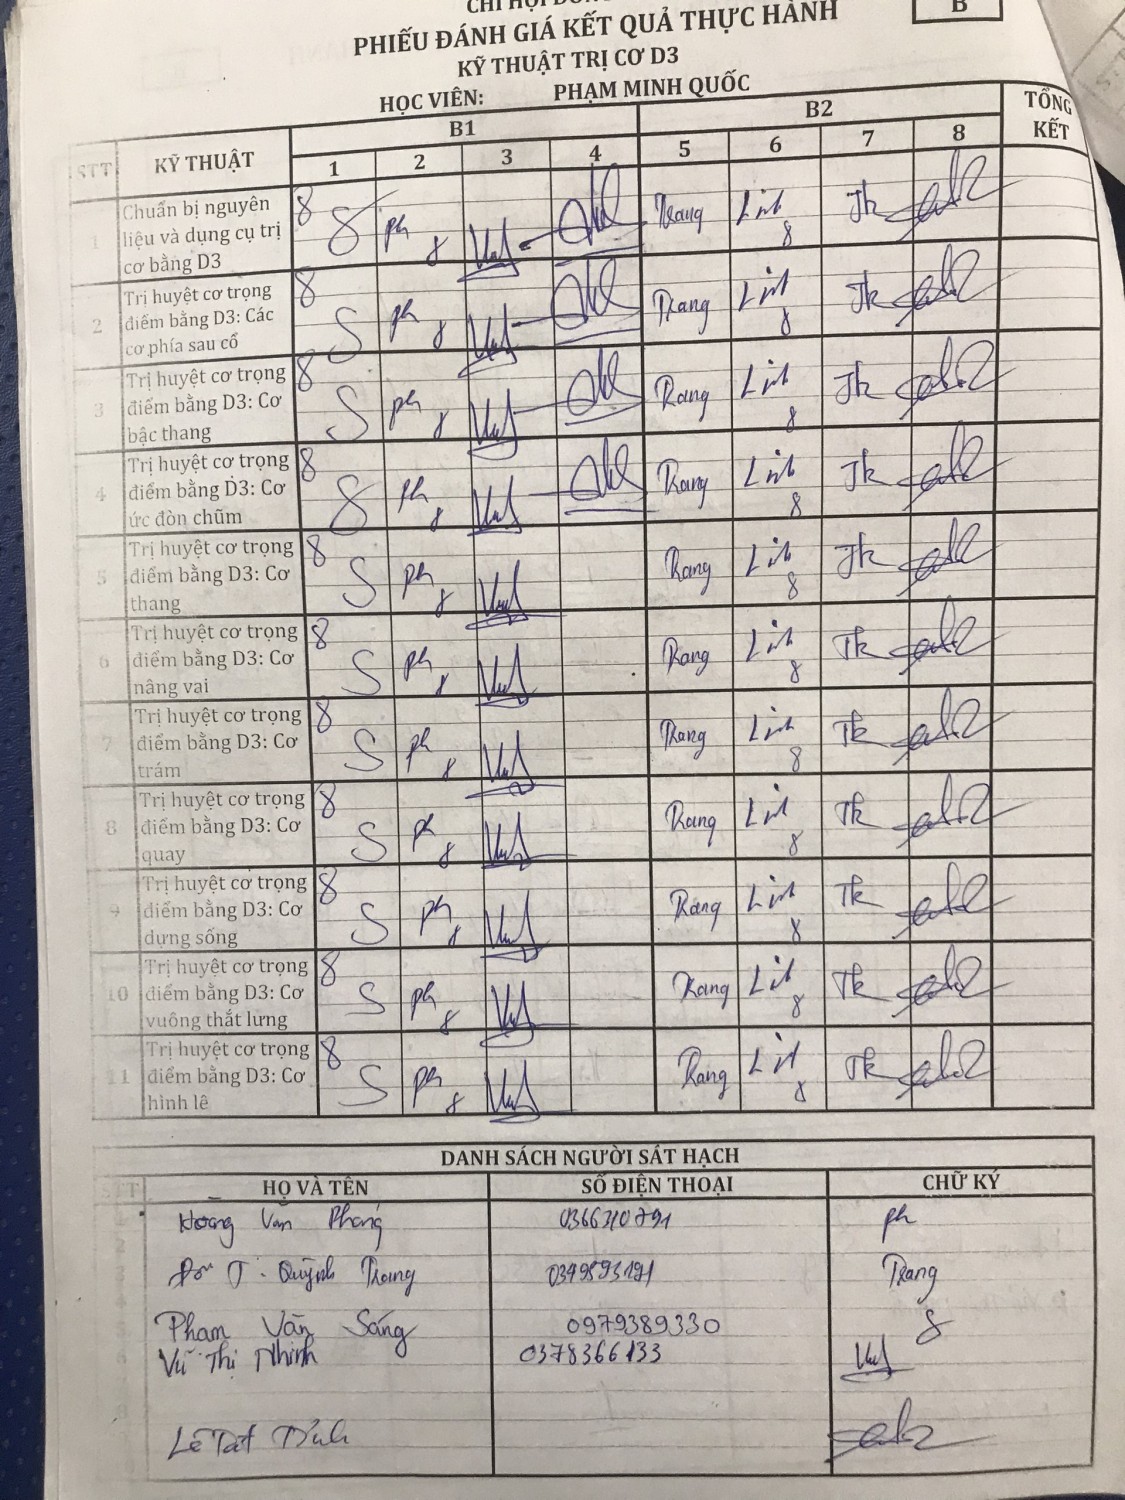 PHIẾU ĐÁNH GIÁ KẾT QUẢ THỰC HÀNH
B
KỸ THUẬT TRỊ CƠ D3
HỌC VIÊN: PHẠM MINH QUỐC
STT KỸ THUẬT B1 B2 TỔNG KẾT
1 2 3 4 5 6 7 8
1 Chuẩn bị nguyên liệu và dụng cụ trị cơ bằng D3 8 8 ph 8 Trang Linh 8 Tk
2 Trị huyệt cơ trọng điểm bằng D3: Các cơ phía sau cổ 8 S ph 8 Trang Linh 8 Tk
3 Trị huyệt cơ trọng điểm bằng D3: Cơ bậc thang 8 S ph 8 Trang Linh 8 Tk
4 Trị huyệt cơ trọng điểm bằng D3: Cơ ức đòn chũm 8 8 ph 8 Trang Linh 8 Tk
5 Trị huyệt cơ trọng điểm bằng D3: Cơ thang 8 S ph 8 Trang Linh 8 Tk
6 Trị huyệt cơ trọng điểm bằng D3: Cơ nâng vai 8 S ph 8 Trang Linh 8 Tk
7 Trị huyệt cơ trọng điểm bằng D3: Cơ trám 8 S ph 8 Trang Linh 8 Tk
8 Trị huyệt cơ trọng điểm bằng D3: Cơ quay 8 S ph 8 Trang Linh 8 Tk
9 Trị huyệt cơ trọng điểm bằng D3: Cơ dựng sống 8 S ph 8 Trang Linh 8 Tk
10 Trị huyệt cơ trọng điểm bằng D3: Cơ vuông thắt lưng 8 S ph 8 Trang Linh 8 Tk
11 Trị huyệt cơ trọng điểm bằng D3: Cơ hình lê 8 S ph 8 Trang Linh 8 Tk
DANH SÁCH NGƯỜI SÁT HẠCH
STT HỌ VÀ TÊN SỐ ĐIỆN THOẠI CHỮ KÝ
Hoàng Văn Phong 0366310791 ph
Đỗ T. Quỳnh Trang 0349593191 Trang
Phạm Văn Sáng 0979389330 8
Vũ Thị Nhinh 0378366133
Lê Tất